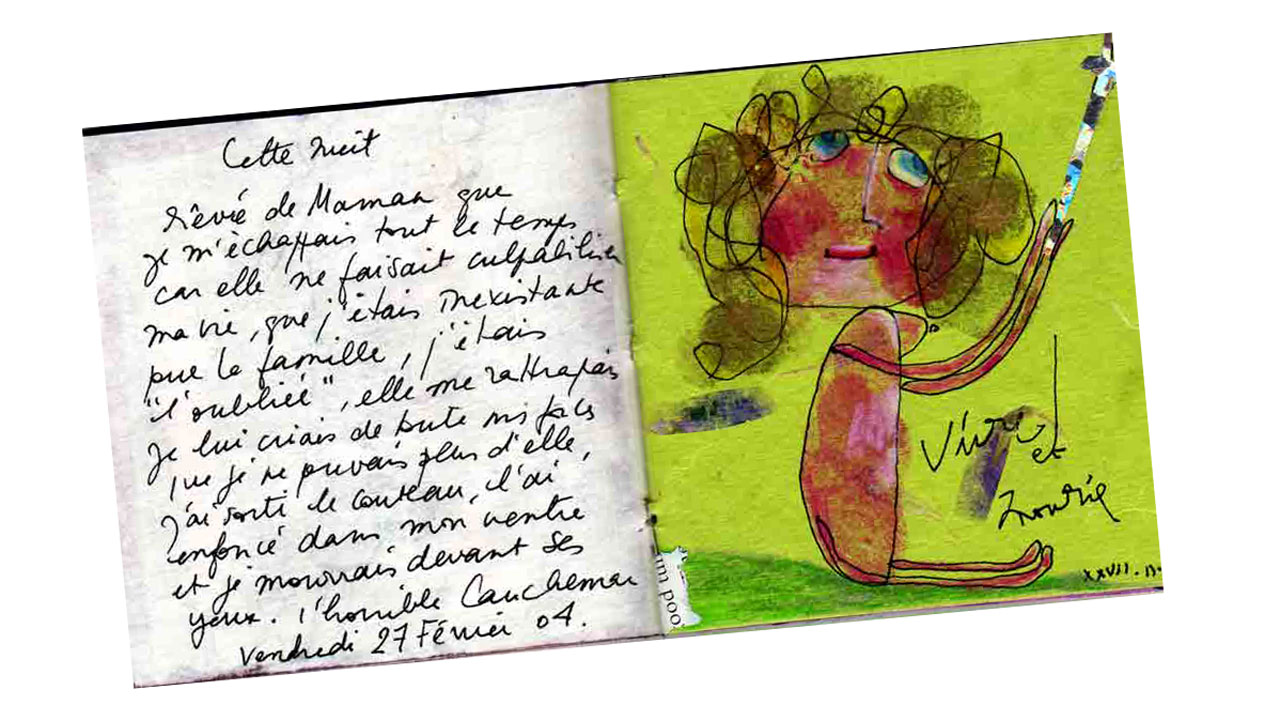 Cette nuit
Rêvé de Maman que
je m'échappais tout le temps
car elle me faisait culpabiliser
ma vie, que j'étais inexistante
pour la famille, j'étais
"l'oubliée", elle me rattrapais
Je lui criais de toute mes forces
que je ne pouvais plus d'elle,
j'ai sorti le couteau, l'ai
enfoncé dans mon ventre
et je mourrais devant ses
yeux. l'horrible Cauchemar
Vendredi 27 Février 04.
Vivre
et
Mourir
XXVII.
um poo